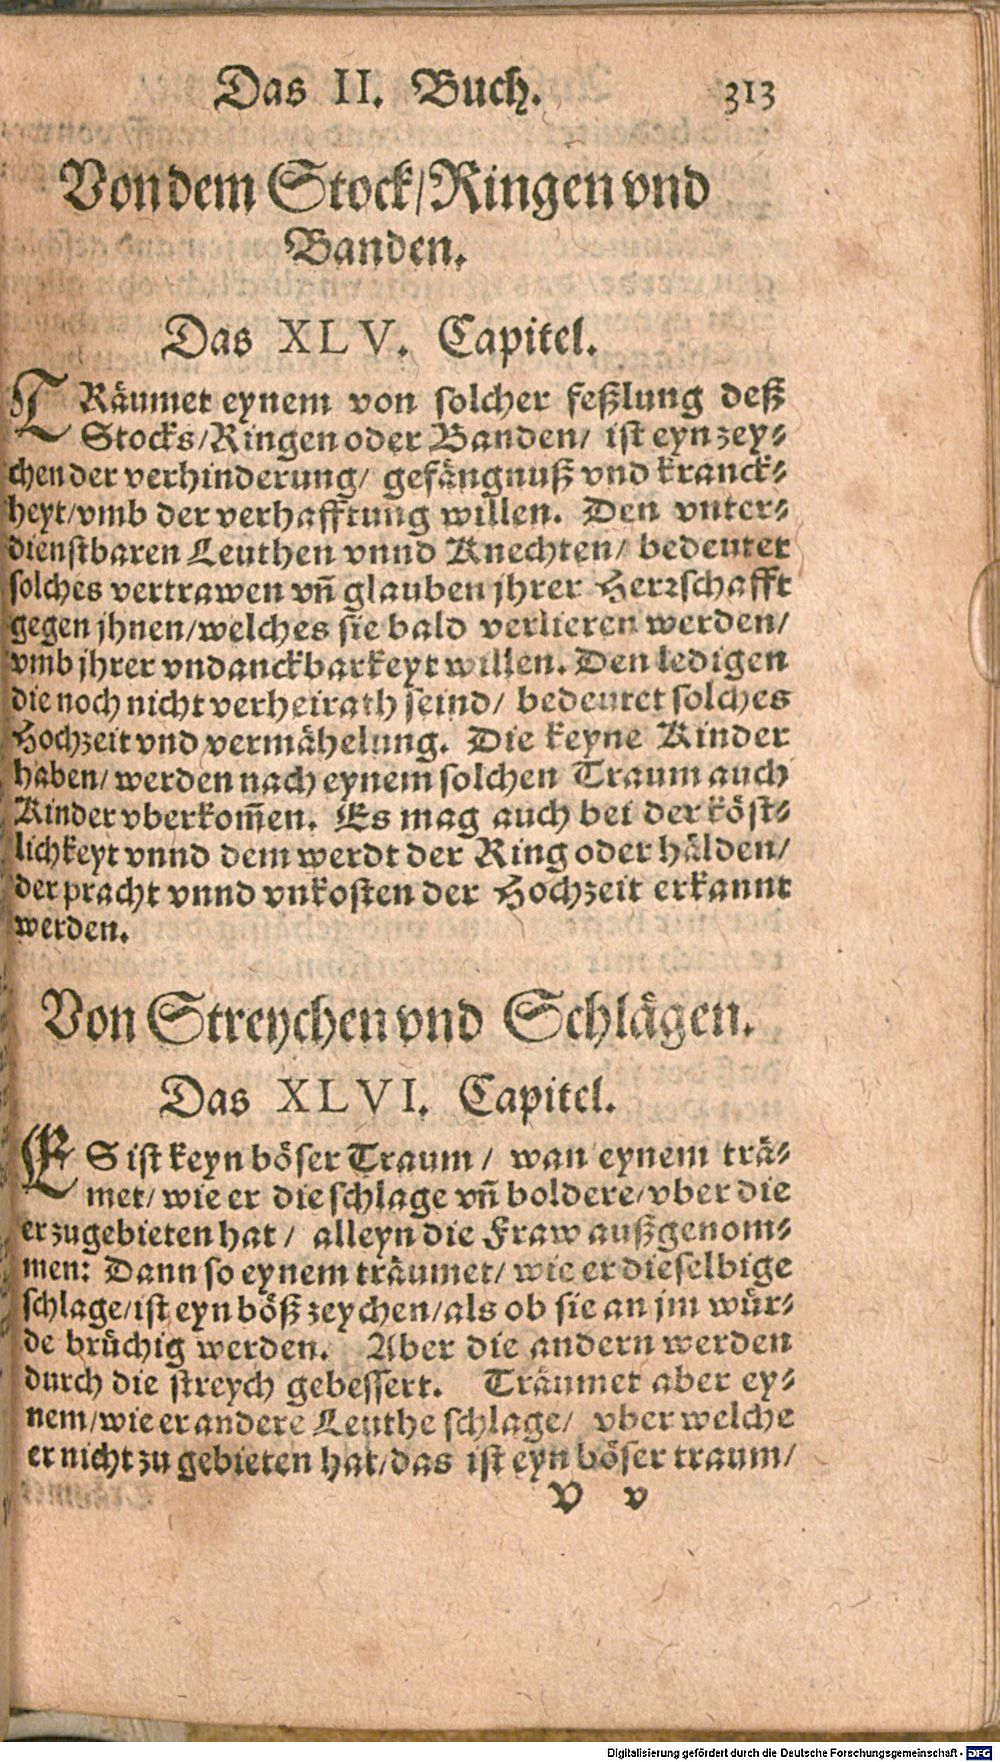 Das II. Buch. 313
Von dem Stock/Ringen vnd
Banden.
Das XLV. Capitel.
TRäumet eynem von solcher feßlung deß
Stocks/Ringen oder Banden/ ist eyn zey-
chen der verhinderung/ gefängnuß vnd kranck-
heyt/vmb der verhafftung willen. Den vnter-
dienstbaren Leuthen vnnd Knechten/ bedeutet
solches vertrawen vñ glauben jhrer Herrschafft
gegen jhnen/welches sie bald verlieren werden/
vmb jhrer vndanckbarkeyt willen. Den ledigen
die noch nicht verheirath seind/ bedeutet solches
Hochzeit vnd vermähelung. Die keyne Kinder
haben/ werden nach eynem solchen Traum auch
Kinder vberkom̃en. Es mag auch bei der köst-
lichkeyt vnnd dem werdt der Ring oder hälden/
der pracht vnnd vnkosten der Hochzeit erkannt
werden.
Von Streychen vnd Schlägen.
Das XLVI. Capitel.
ES ist keyn böser Traum / wan eynem trä-
met/ wie er die schlage vñ boldere/vber die
er zugebieten hat / alleyn die Fraw außgenom-
men: Dann so eynem träumet/ wie er dieselbige
schlage/ist eyn böß zeychen/als ob sie an jm wür-
de brüchig werden. Aber die andern werden
durch die streych gebessert. Träumet aber ey-
nem/wie er andere Leuthe schlage/ vber welche
er nicht zu gebieten hat/das ist eyn böser traum/
V v
Digitalisierung gefördert durch die Deutsche Forschungsgemeinschaft - DFG